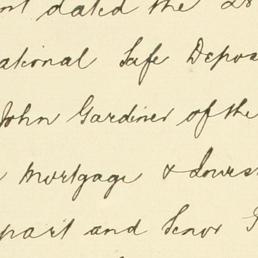 dated the 28
ational Safe Depos
John Gardiner of the
Mortgage & Inves
part and Senor